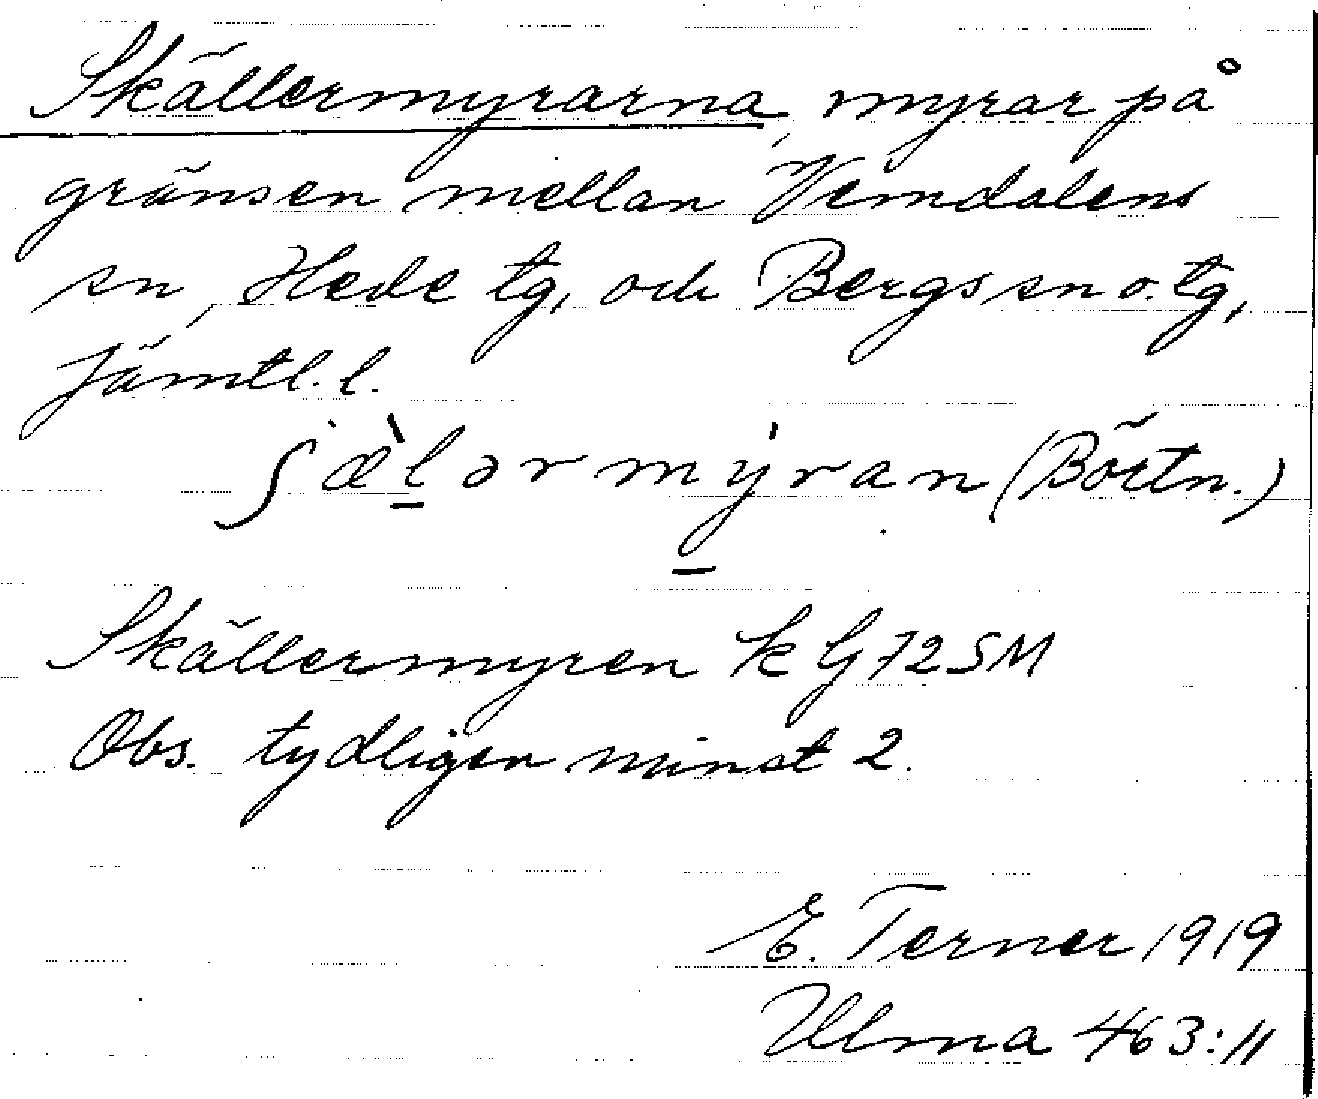 Skällermyrarna, myrar på
gränsen mellan Vemdalens
sn, Hede tg, och Bergs sn o. tg,
Jämtl. l.
ʃæ̀l̠ərmy̠̍ran (Börtn.)
Skällermyren k G 72 SM
Obs. tydligen minst 2.
E. Terner 1919
Ulma 463:11